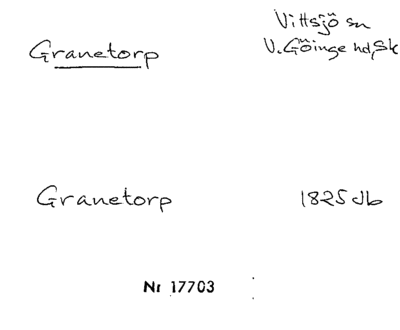 Vittsjö sn
Granetorp V. Göinge hd, Sk
Granetorp 1825 db
Nr 17703